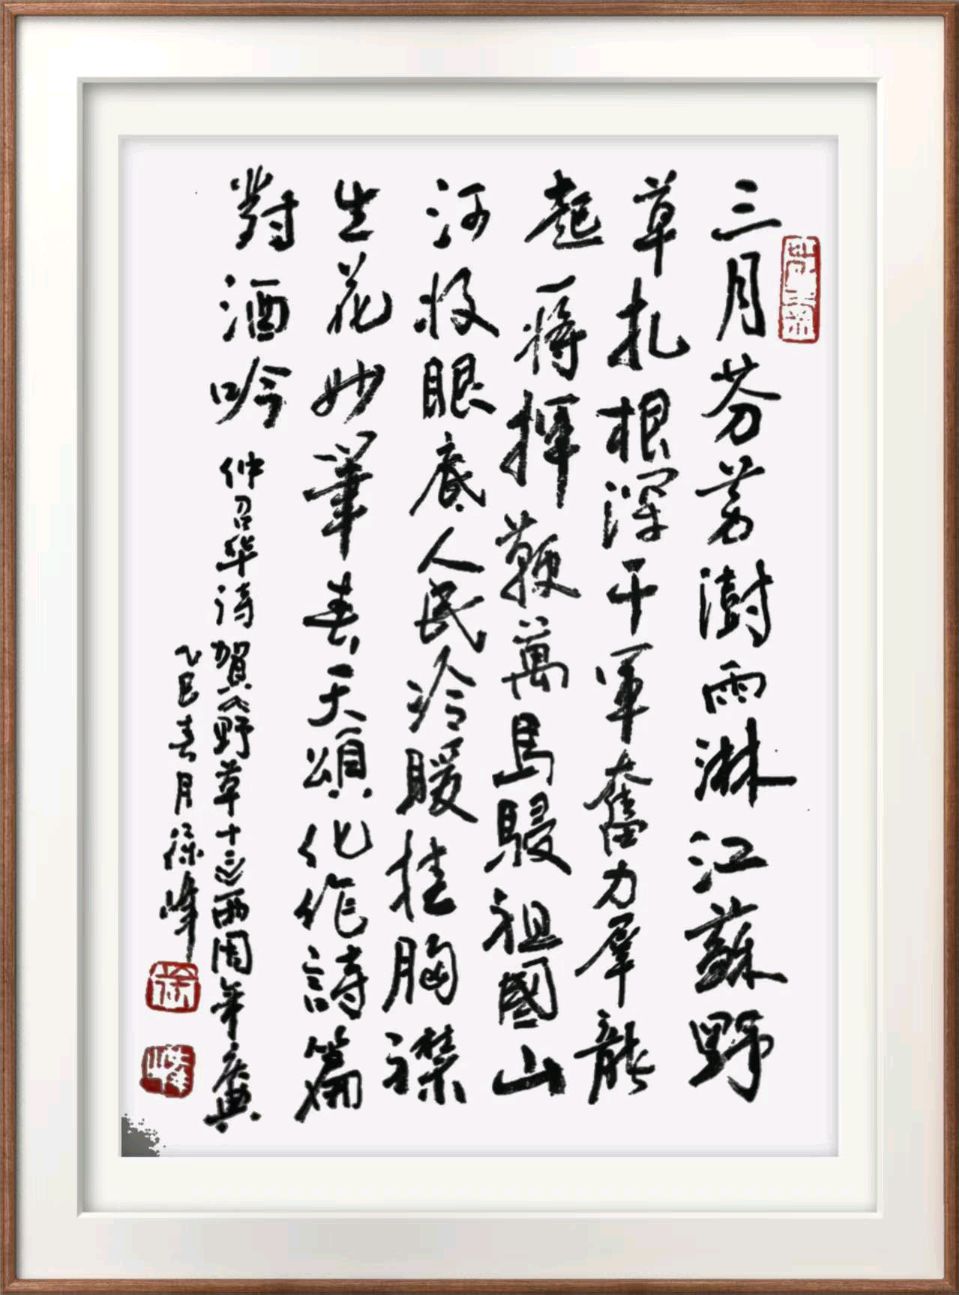 三月芬芳澍雨淋江蘇野
草扎根深千軍奮力羣龍
起一将揮鞭萬馬駸祖國山
河收眼底人民冷暖挂胸襟
生花妙筆春天頌化作詩篇
對酒吟 仲召华诗賀《野草十三》两周年慶典
乙巳春月徐峰
徐
峰